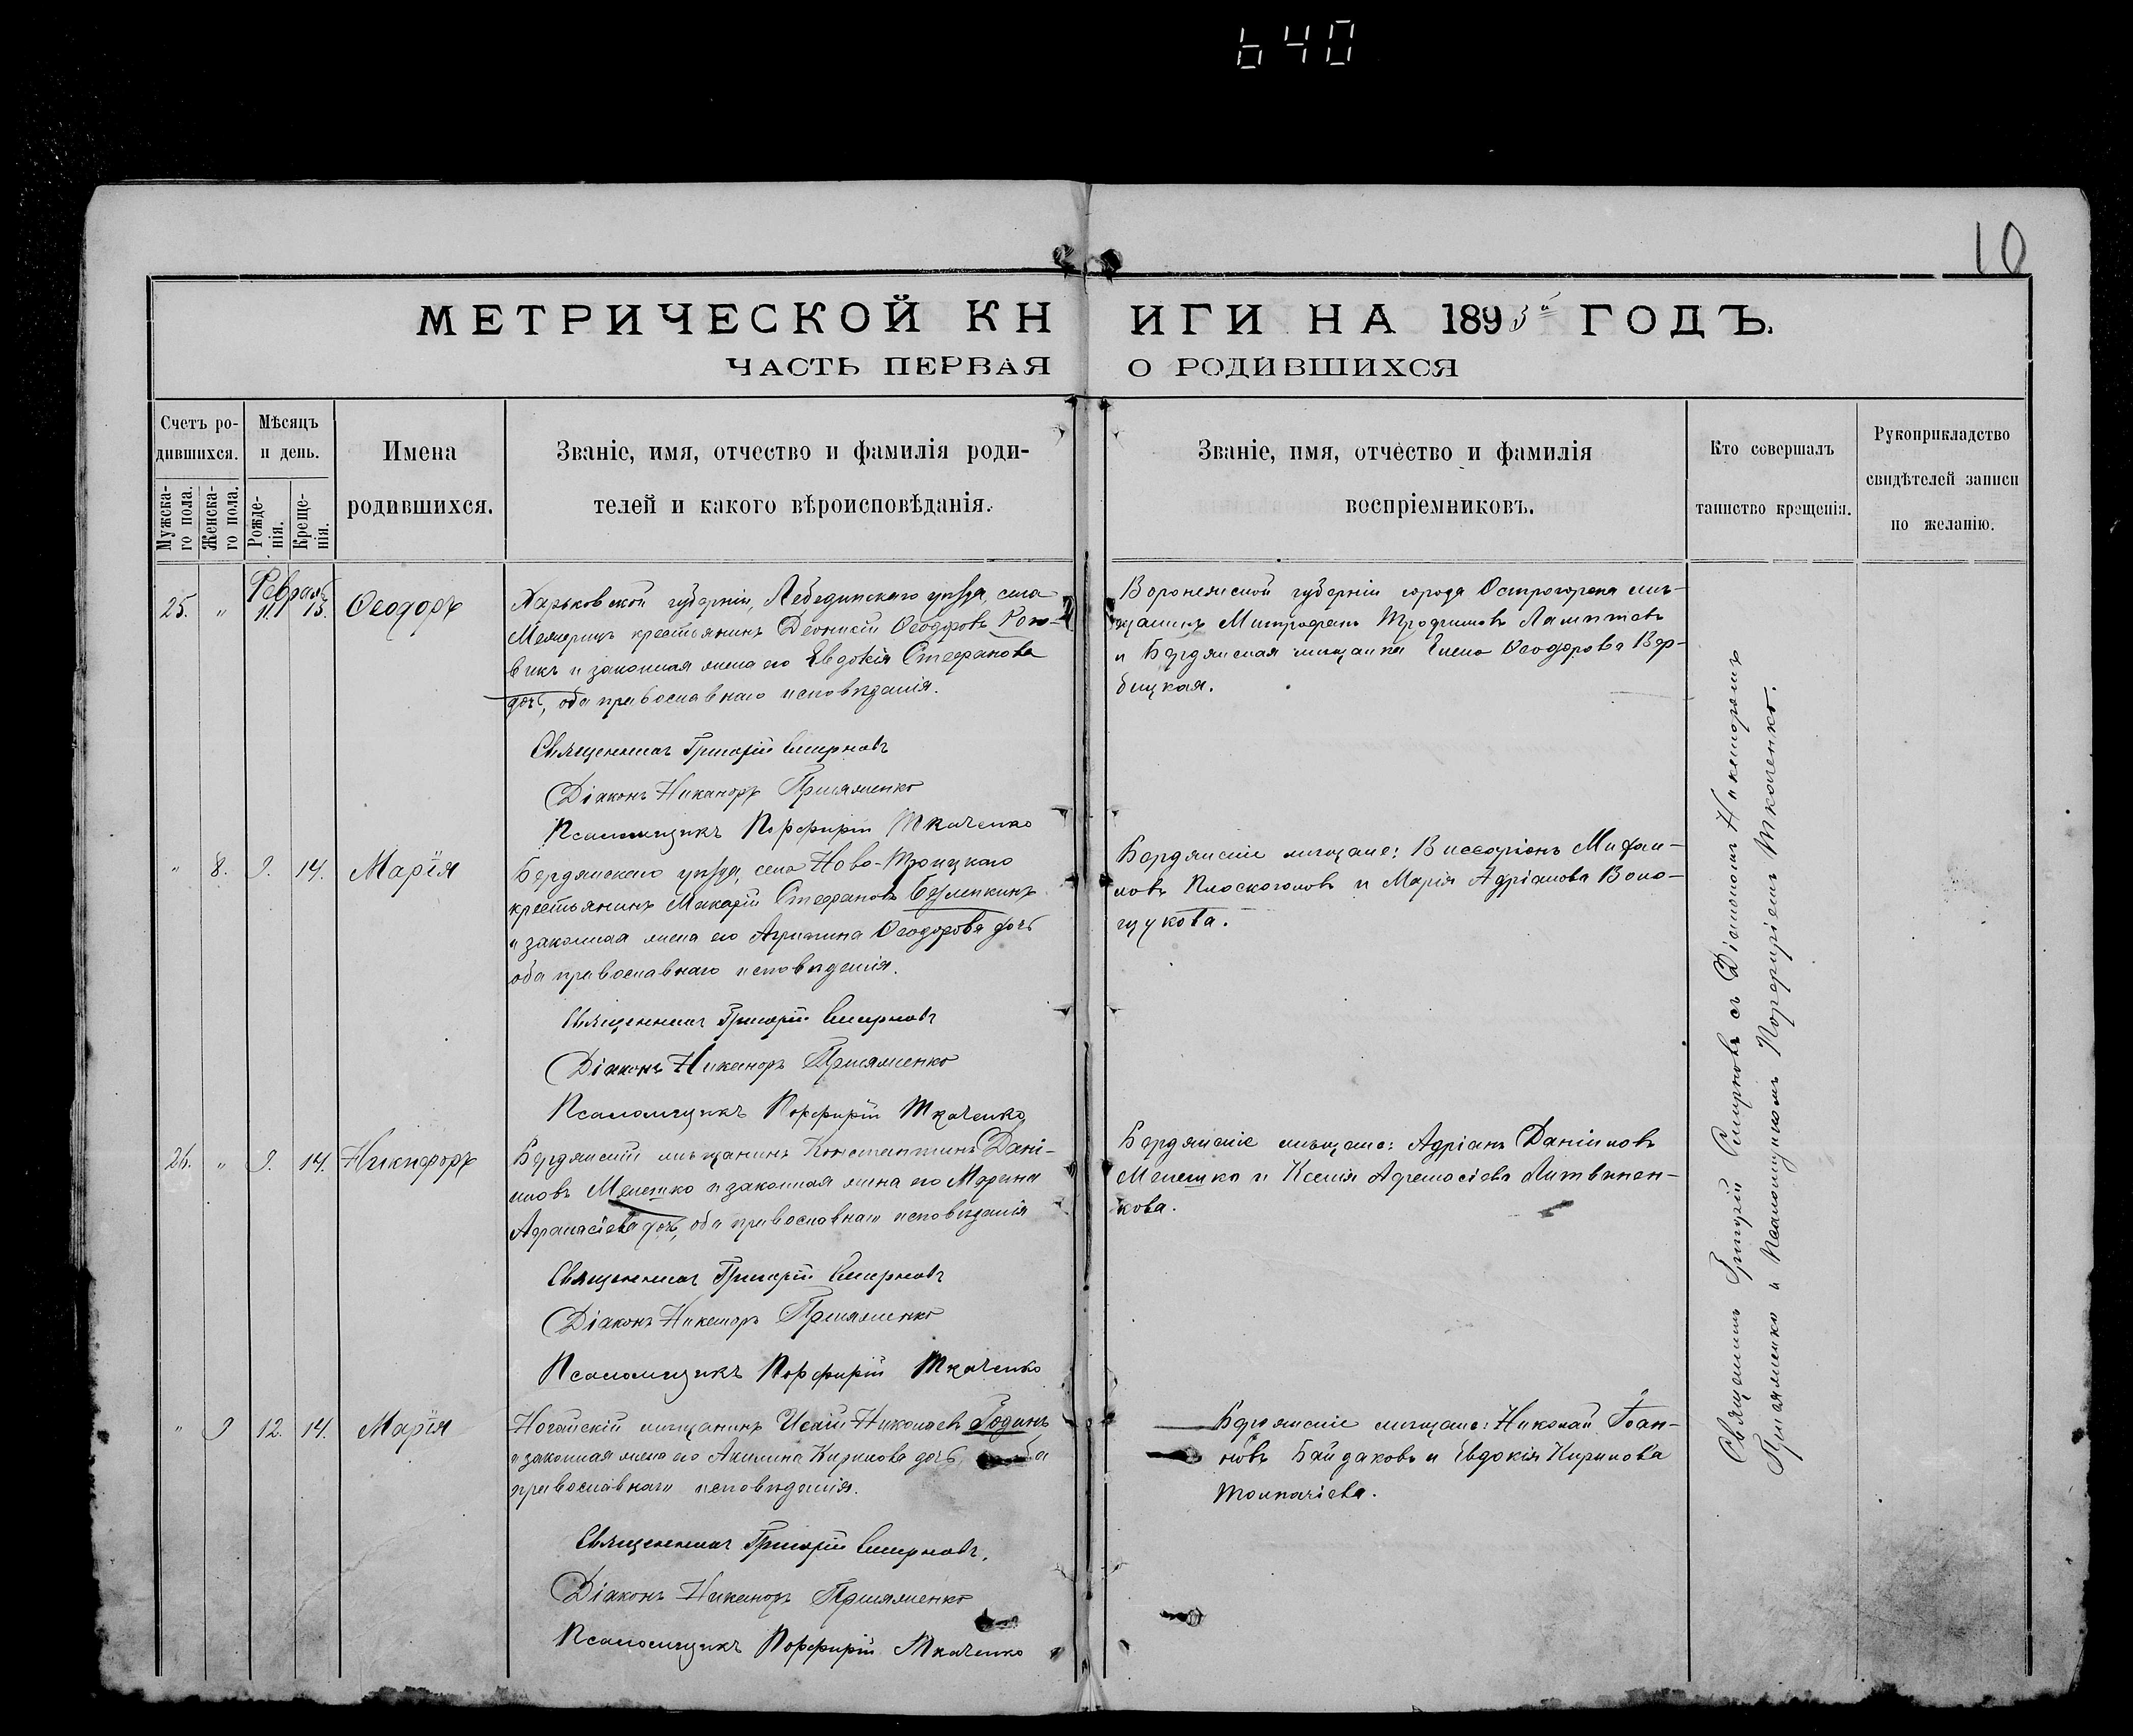 640
10
МЕТРИЧЕСКОЙ КНИГИ НА 1893й ГОДЪ.
ЧАСТЬ ПЕРВАЯ О РОДИВШИХСЯ
Счетъ ро-
дившихся.
Мужска-
го пола.
Женска-
го пола.
Мѣсяцъ
и день.
Рожде-
нія.
Креще-
нія.
Имена
родившихся.
Званіе, имя, отчество и фамилія роди-
телей и какого вѣроисповѣданія.
Званіе, имя, отчество и фамилія
воспріемниковъ.
Кто совершалъ
таинство крещенія.
Рукоприкладство
свидѣтелей записи
по желанію.
Февраль
25. " 11 13. Ѳеодоръ
Харьковской губерніи, Лебединскаго уѣзда, села
Межеричъ крестьянинъ Деонисій Ѳеодоровъ
викъ и законная жена его Евдокія Стефанова
дочь, оба православнаго исповѣданія.
Священникъ Григорій Смирновъ
Діаконъ Никаноръ
Псаломщикъ Порфирій Ткаченко
Воронежской губерніи города Острогожска мѣ-
щанинъ Митрофанъ Трофимовъ
и Бердянская мѣщанка Елена Ѳеодорова Вер-
бицкая.
" 8. 9. 14. Марія
Бердянскаго уѣзда, села Ново-Троицкаго
крестьянинъ Макарій Стефановъ
и законная жена его Агрипина Ѳеодорова дочь
оба православнаго исповѣданія.
Священникъ Григорій Смирновъ
Діаконъ Никаноръ
Псаломщикъ Порфирій Ткаченко
Бердянскіе мѣщане: Виссаріонъ Михаи-
ловъ Плоскоголовъ и Марія Адріанова Воло-
щукова.
26. " 9. 14. Никифоръ
Бердянскій мѣщанинъ Константинъ Дані-
иловъ Мелешко и законная жена его Марина
Афанасіева дочь, оба православнаго исповѣданія
Священникъ Григорій Смирновъ
Діаконъ Никаноръ
Псаломщикъ Порфирій Ткаченко
Бердянскіе мѣщане: Адріанъ Даніиловъ
Мелешко и Ксенія Афанасіева Литвинен-
кова.
" 9 12. 14. Марія
Ногайскій мѣщанинъ Исаій Николаевъ Годинъ
и законная жена его Акилина Кирилова дочь, оба
православнаго исповѣданія.
Священникъ Григорій Смирновъ.
Діаконъ Никаноръ
Псаломщикъ Порфирій Ткаченко
Бердянскіе мѣщане: Николай Іоан-
новъ Байдаковъ и Евдокія Кирилова
Толмачіева.
Священникъ Григорій Смирновъ съ Діакономъ Никаноромъ
и Псаломщикомъ Порфиріемъ Ткаченко.